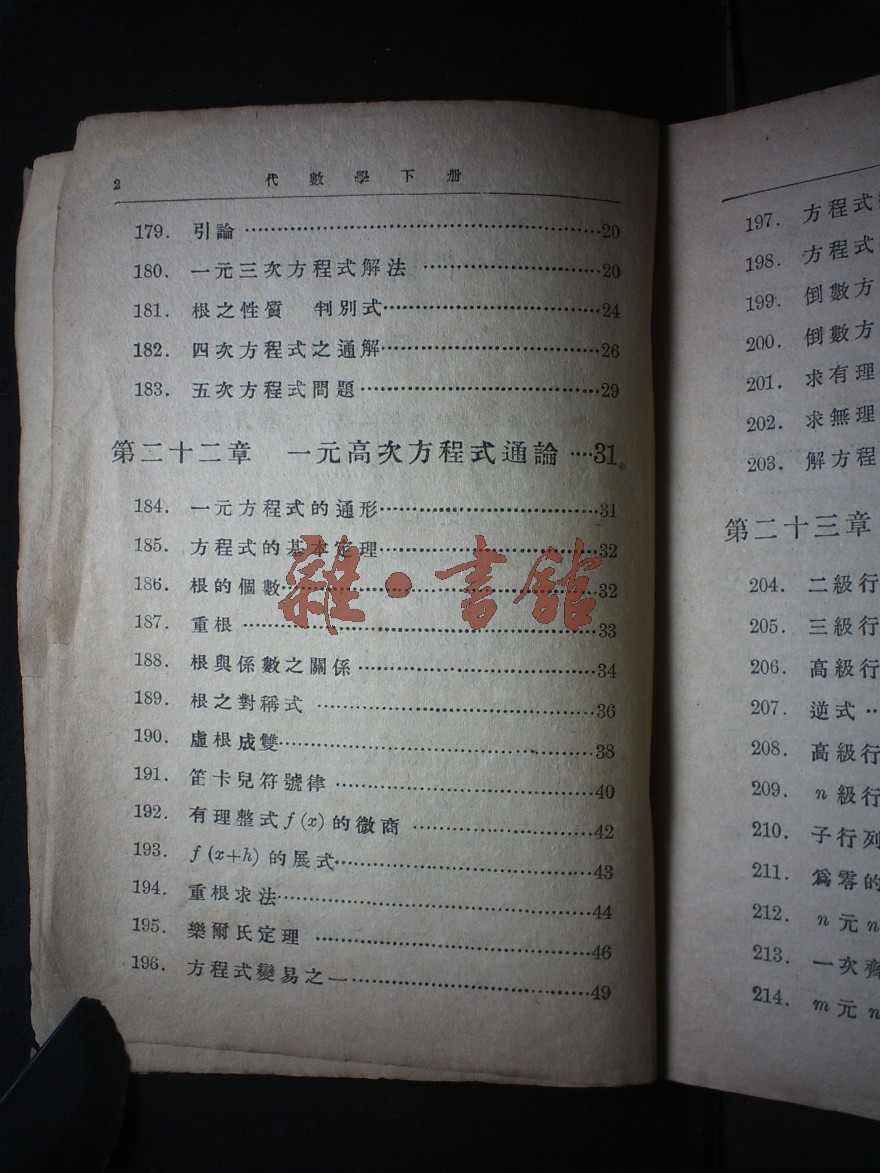 2 代數學下册
179. 引論 20
180. 一元三次方程式解法 20
181. 根之性質 判別式 24
182. 四次方程式之通解 26
183. 五次方程式問題 29
第二十二章 一元高次方程式通論 31
184. 一元方程式的通形 31
185. 方程式的基本定理 32
186. 根的個數 32
187. 重根 33
188. 根與係數之關係 34
189. 根之對稱式 36
190. 虛根成雙 38
191. 笛卡兒符號律 40
192. 有理整式 f(x) 的微商 42
193. f(x+h) 的展式 43
194. 重根求法 44
195. 樂爾氏定理 46
196. 方程式變易之一 49
雜·書館
197. 方程式
198. 方程式
199. 倒數方
200. 倒數方
201. 求有理
202. 求無理
203. 解方程
第二十三章
204. 二級行
205. 三級行
206. 高級行
207. 逆式
208. 高級行
209. n級行
210. 子行列
211. 爲零的
212. n元n
213. 一次齊
214. m元n